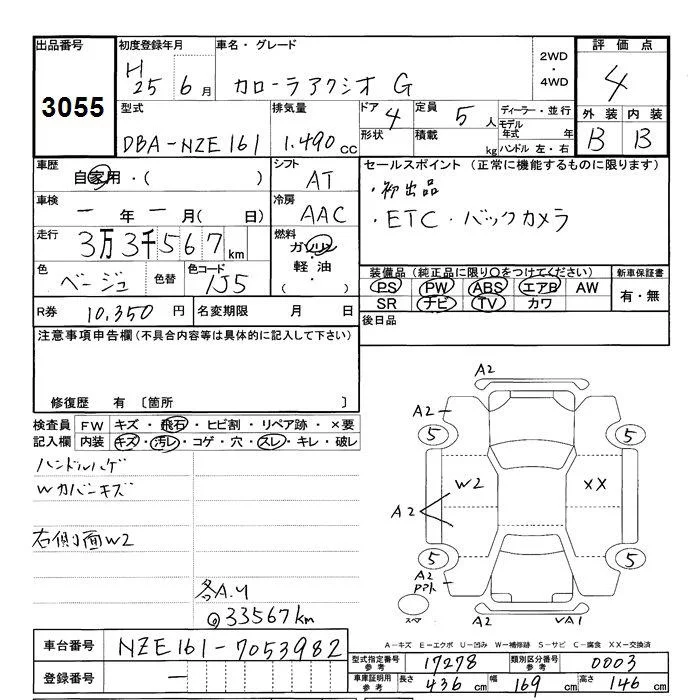 出品番号
3055
初度登録年月
H25 6月
車名・グレード
カローラアクシオ G
2WD
・
4WD
評価点
4
型式
DBA-NZE161
排気量
1.490 cc
ドア 4
形状
定員 5人
積載 kg
ディーラー・並行
モデル年式 年
ハンドル 左・右
外装 内装
B B
車歴
自家用・( )
シフト
AT
セールスポイント (正常に機能するものに限ります)
・初出品
・ETC・バックカメラ
車検
一年一月( 日)
冷房
AAC
走行
3万3千567km
燃料
ガソリン
・
軽油
・
( )
色
ベージュ
色替
色コード
1J5
装備品 (純正品に限り○をつけてください)
PS PW ABS エアB AW
SR ナビ TV カワ
新車保証書
有・無
R券 10,350 円
名変期限 月 日
後日品
注意事項申告欄(不具合内容等は具体的に記入して下さい)
修復歴 有 〔箇所 〕
検査員 FW キズ・飛石・ヒビ割・リペア跡・×要
記入欄 内装 キズ・汚レ・コゲ・穴・スレ・キレ・破レ
ハンドルハゲ
Wカバーキズ
右側面W2
各A.U
33567km
A2
A2
5 5
W2 XX
A2
5 5
A2
A2 VA1
スペア
A-キズ E-エクボ U-凹み W-補修跡 S-サビ C-腐食 XX-交換済
車台番号 NZE161-7053982
登録番号 一
型式指定番号参考 17278 類別区分番号参考 0003
車庫証明用参考 長さ 436 cm 幅 169 cm 高さ 146 cm